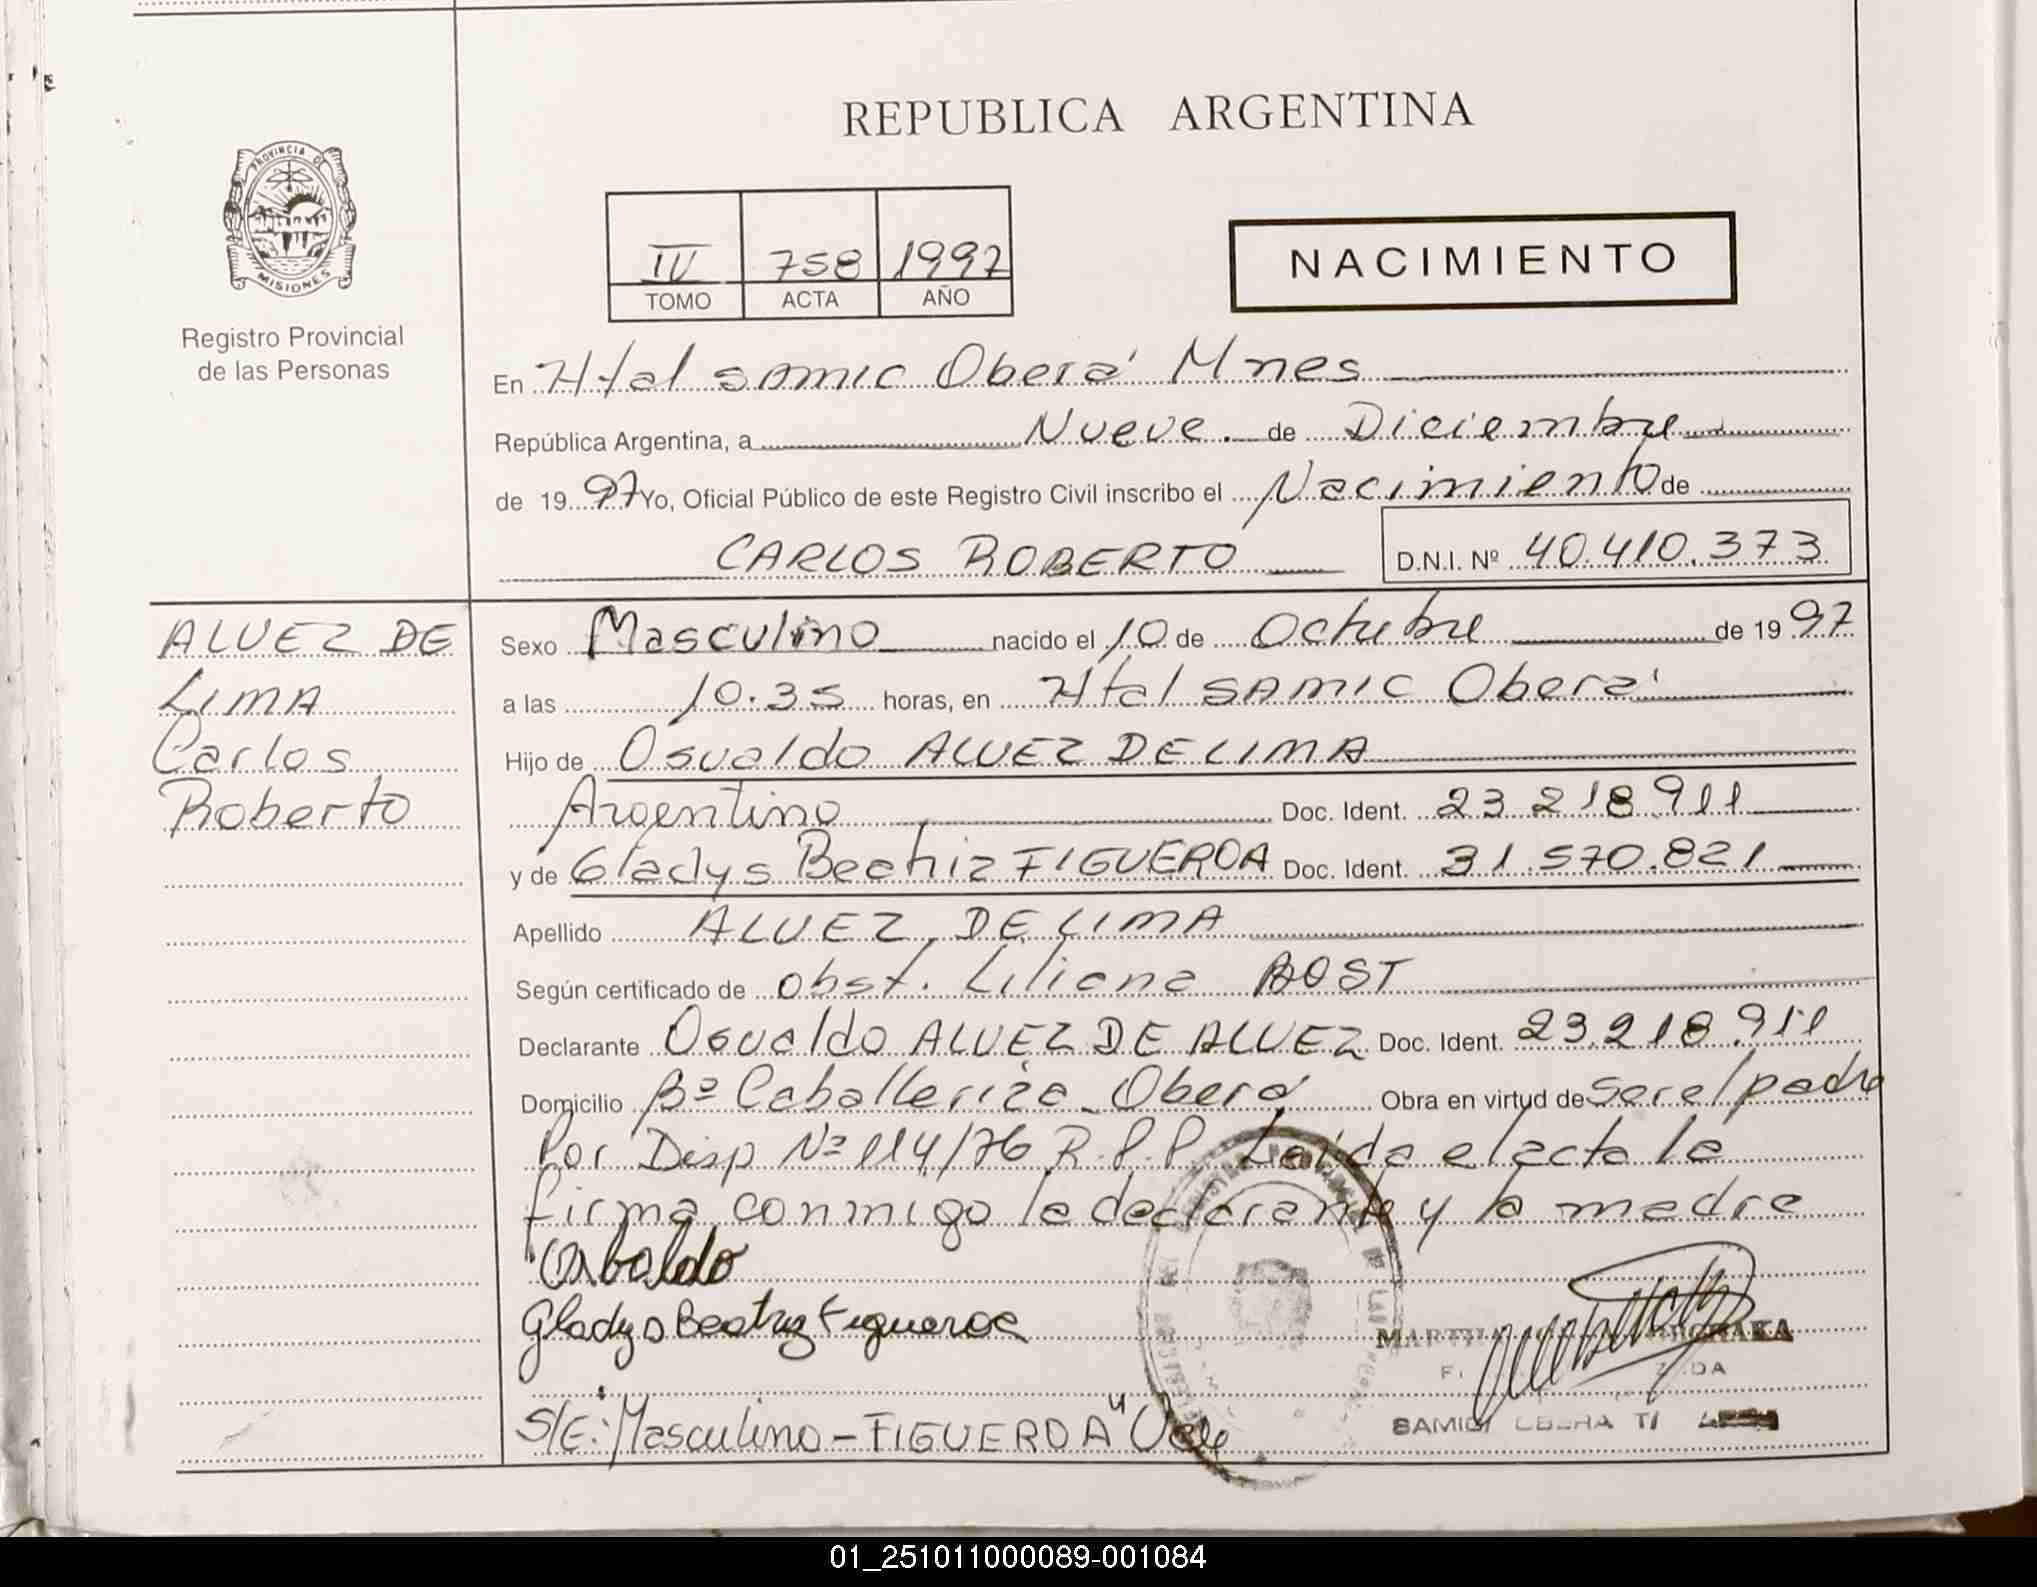 REPUBLICA ARGENTINA
PROVINCIA DE
MISIONES
Registro Provincial
de las Personas
IV 758 1997
TOMO ACTA AÑO
NACIMIENTO
En Htal SAMIC Oberá Mnes
República Argentina, a Nueve. de Diciembre
de 1997 Yo, Oficial Público de este Registro Civil inscribo el Nacimiento de
CARLOS ROBERTO D.N.I. Nº 40.410.373
ALVEZ DE
LIMA
Carlos
Roberto
Sexo Masculino nacido el 10 de Octubre de 1997
a las 10.35 horas, en Htal SAMIC Oberá
Hijo de Osvaldo ALVEZ DE LIMA
Argentino Doc. Ident. 23.218.911
y de Gladys Beatriz FIGUEROA Doc. Ident. 31.570.821
Apellido ALVEZ DE LIMA
Según certificado de obst. Liliana BOST
Declarante Osvaldo ALVEZ DE ALVEZ Doc. Ident. 23.218.911
Domicilio Bº Caballeriza Oberá Obra en virtud de ser el padre
Por Disp Nº 114/76 R.P.P. Leída el acta la
firma conmigo la declarante y la madre
Osbaldo
Gladys Beatriz Figueroa
S/E: "Masculino - FIGUEROA" Vale
SAMIC OBERA
01_251011000089-001084